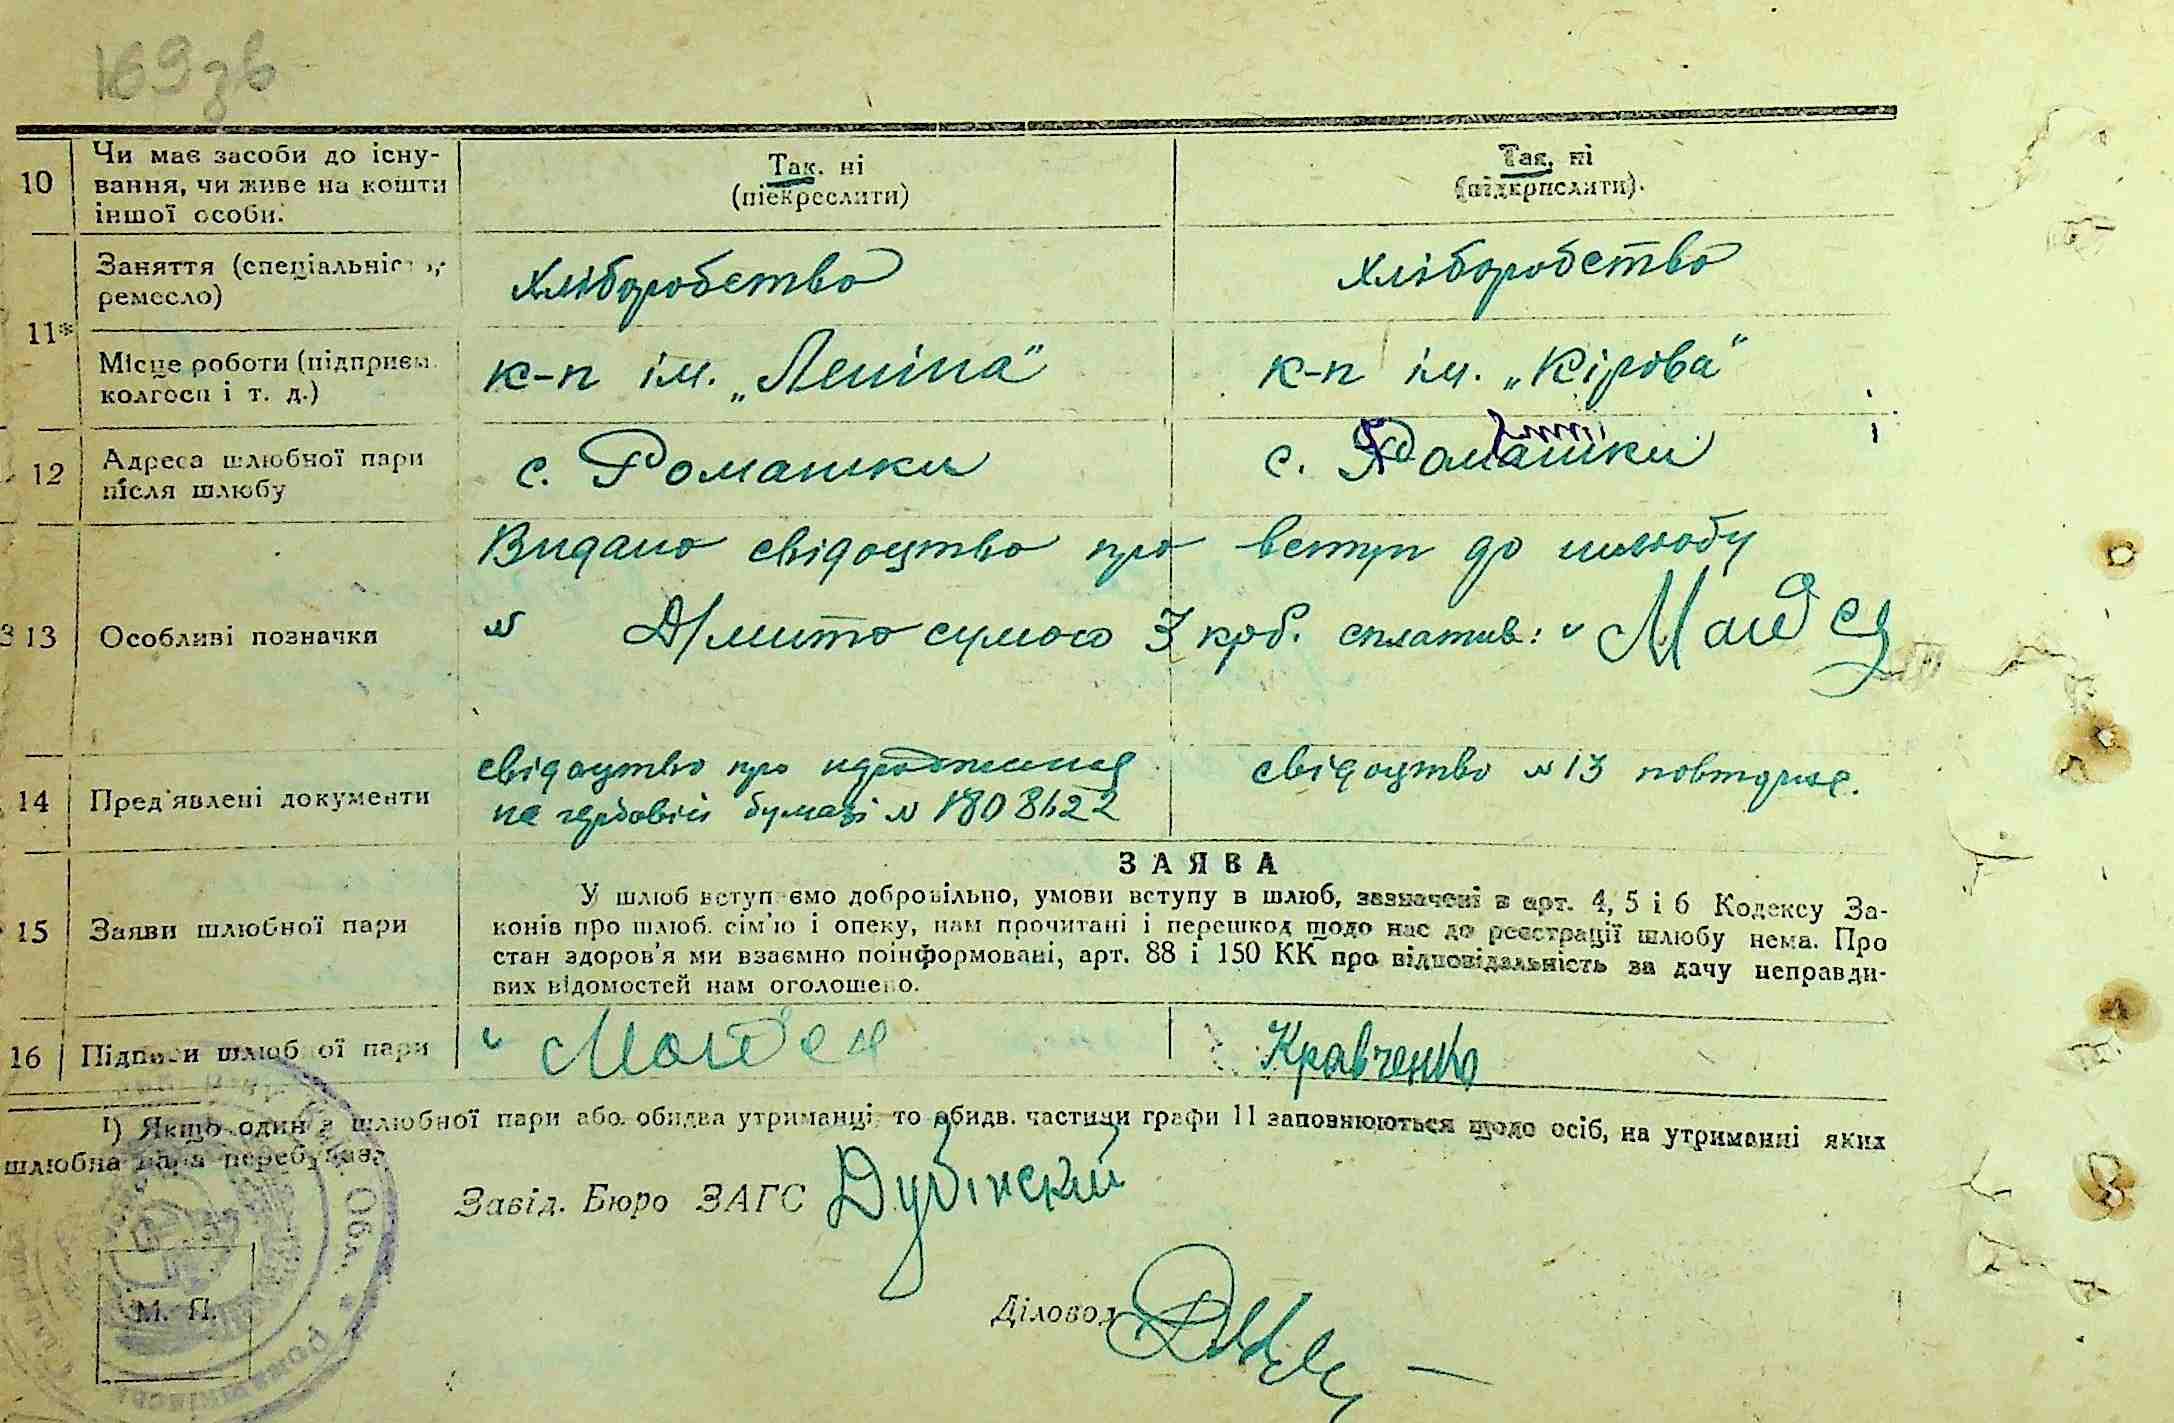 169 зв
10 Чи має засоби до існу-
вання, чи живе на кошти
іншої особи.
Так. ні
(піекреслити)
Так, ні
(підкрислити).
11*
Заняття (спеціальність,
ремесло)
Хліборобство
Хліборобство
Місце роботи (підприєм.
колгосп і т. д.)
к-п ім. „Леніна"
к-п ім. „Кірова"
12 Адреса шлюбної пари
після шлюбу
с. Ромашки
с. Ромашки
13 Особливі позначки
Видано свідоцтво про вступ до шлюбу
№ Мито сумою 3 крб. сплатив:
14 Пред'явлені документи
свідоцтво про народження
на гербовій бумазі № 1808622
свідоцтво № 13 повторне.
15 Заяви шлюбної пари
ЗАЯВА
У шлюб вступаємо добровільно, умови вступу в шлюб, зазначені в арт. 4, 5 і 6 Кодексу За-
конів про шлюб. сім'ю і опеку, нам прочитані і перешкод щодо нас до реєстрації шлюбу нема. Про
стан здоров'я ми взаємно поінформовані, арт. 88 і 150 КК про відповідальність за дачу неправди-
вих відомостей нам оголошено.
16 Підписи шлюбної пари
Кравченко
1) Якщо один з шлюбної пари або обидва утриманці, то обидв. частини графи 11 заповнюються щодо осіб, на утриманні яких
шлюбна пара перебуває.
Завід. Бюро ЗАГС Дубінский
Діловод
М. П.